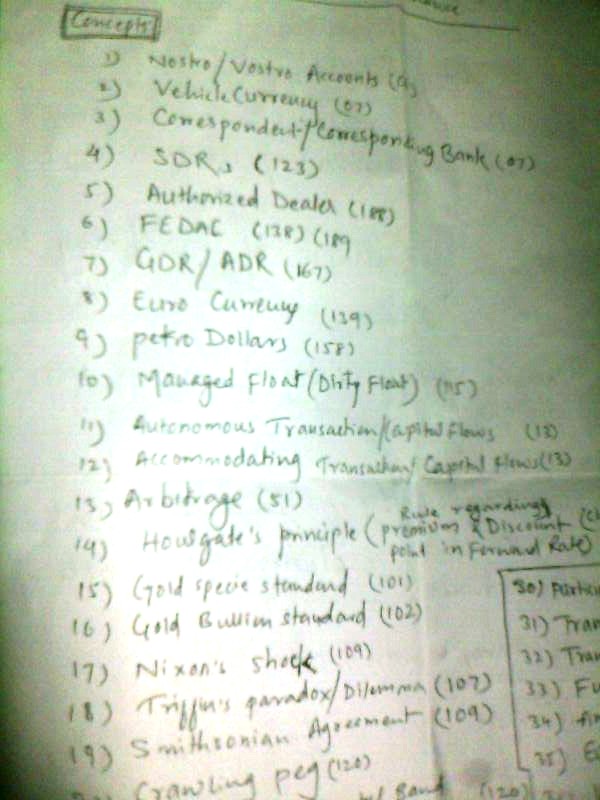 Concepts
1) Nostro/Vostro Accounts (9)
2) Vehicle Currency (07)
3) Correspondent/Corresponding Bank (07)
4) SDRs (123)
5) Authorized Dealer (188)
6) FEDAC (138) (189
7) GDR/ADR (167)
8) Euro Currency (139)
9) petro Dollars (158)
10) Managed Float (Dirty Float) (115)
11) Autonomous Transaction/Capital Flows (13)
12) Accommodating Transaction/Capital Flows (13)
13) Arbitrage (51)
Rule regarding
14) Howgate's principle (premium & Discount
point in Forward Rate)
15) Gold specie standard (101)
16) Gold Bullion standard (102)
17) Nixon's shock (109)
18) Triffin's paradox/Dilemma (107)
19) Smithsonian Agreement (109)
Crawling peg (120)
Band (120)
30)
31) Tran
32) Tran
33) Fu
34) fin
35) E